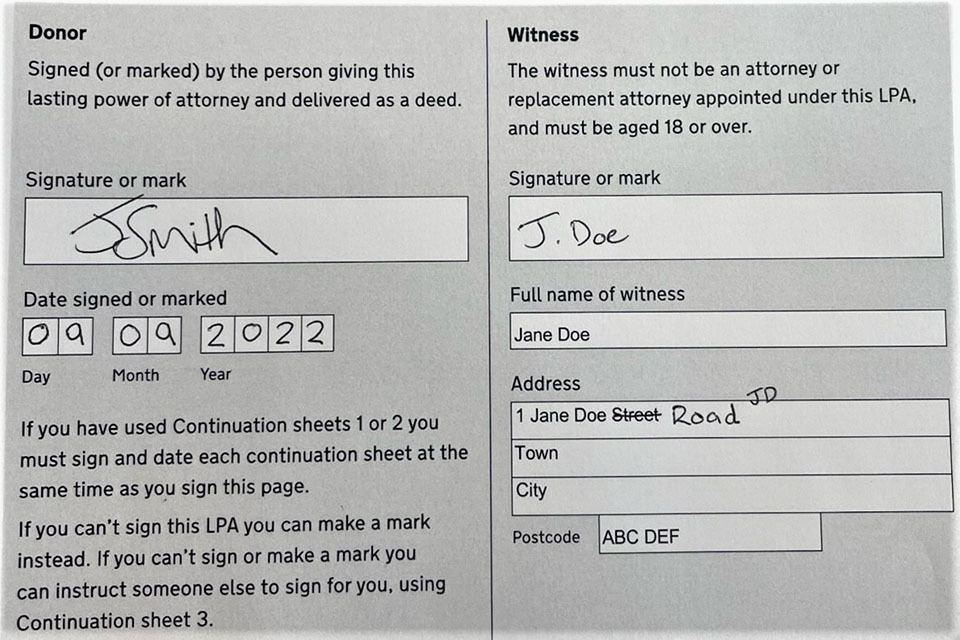 Donor
Signed (or marked) by the person giving this
lasting power of attorney and delivered as a deed.
Signature or mark
JSmith
Date signed or marked
09 09 2022
Day Month Year
If you have used Continuation sheets 1 or 2 you
must sign and date each continuation sheet at the
same time as you sign this page.
If you can't sign this LPA you can make a mark
instead. If you can't sign or make a mark you
can instruct someone else to sign for you, using
Continuation sheet 3.
Witness
The witness must not be an attorney or
replacement attorney appointed under this LPA,
and must be aged 18 or over.
Signature or mark
J. Doe
Full name of witness
Jane Doe
Address
1 Jane Doe Street Road JD
Town
City
Postcode ABC DEF